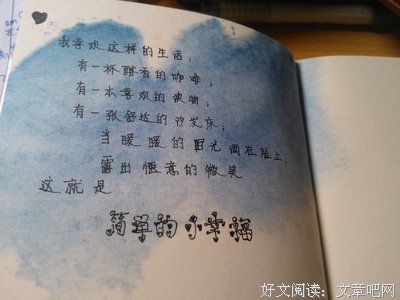 我喜欢这样的生活：
有一杯醇香的咖啡；
有一本喜欢的读物；
有一张舒适的沙发床；
当暖暖的日光洒在脸上，
露出惬意的微笑
这就是
简单的小幸福
好文阅读：文章吧网